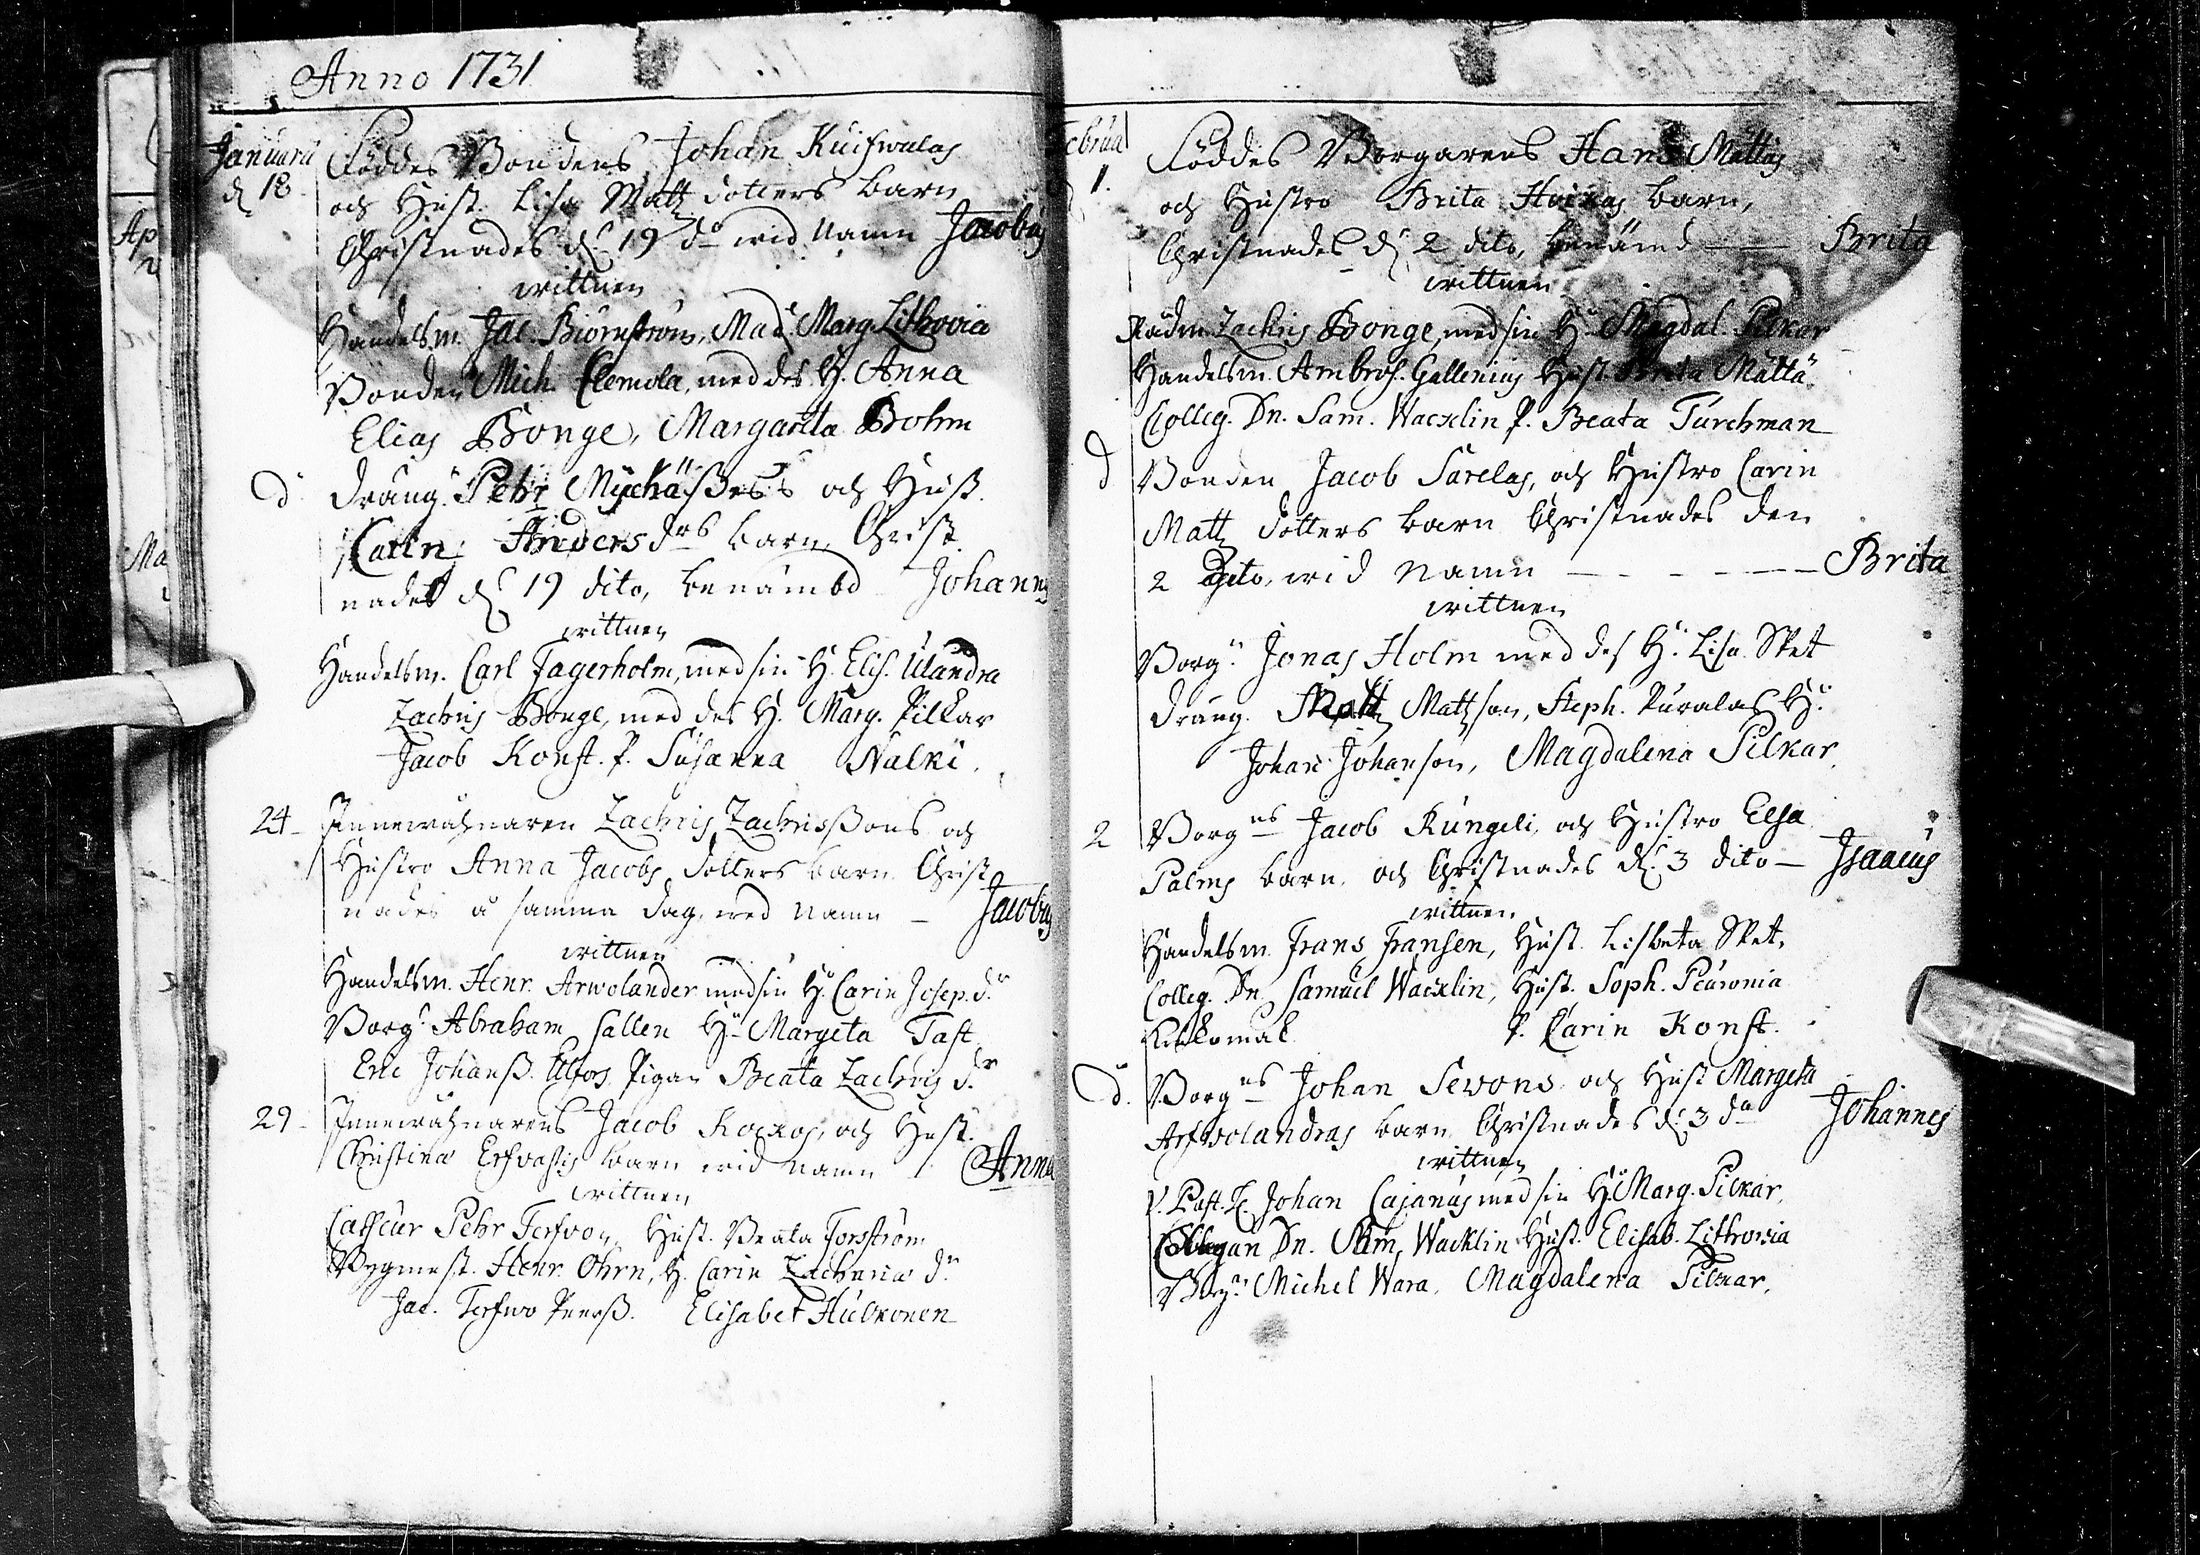 Anno 1731
Januarii
d. 18.
Föddes Bondens Johan Kuifwalas
och Hust. Lisa Matz dotters barn
Christnades d. 19 do wid namn Jacobus
wittnen
Handelsm. Jac. Biörnström, Mad. Marg. Lithovia
Bonden Mich. Clemola, med des H. Anna
Elias Bonge, Margareta Bohm
d. Dräng. Pehr och Hust.
Carin Anders drs barn Christ
nades d. 19 dito, benämbd Johannes
wittnen
Handelsm. Carl Fagerholm, med sin H. Elis. Ulandra
Zachris Bonge, med des H. Marg. Pilkar
Jacob Konst. P. Susanna Walki.
24 Innewåhnaren Zachris Zachrisßons och
Hustro Anna Jacobs dotters barn Christ
nades å samma dag, wed namn — Jacobus
wittnen
Handelsm. Henr. Arwolander med sin H. Carin Josep. dr
Borg. Abraham Sallen H. Margeta Tast
Eric Johanß. Pigan Beata Zachris dr
29 Innewåhnarens Jacob Kockos, och Hust.
Christina barn wid namn Anna
wittnen
Pehr Terfvo, Hust. Beata Forsström
Bygmest. Henr. Öhrn, H. Carin Zacharia dr
Jac. Terfwo Elisabet Hulkonen
Februa
1. Föddes Borgarens Hans Mattas
och Hustro Brita barn,
Christnades d. 2 dito, benämd — Brita
wittnen
Rådm. Zachris Bonge, med sin H. Magdal. Pilkar
Handelsm. Ambros. Gallenius Hust. Brita Matta
Colleg. Dn. Sam. Wacklin P. Beata Turchman
d Bonden Jacob Sarelas, och Hustro Carin
Matz dotters barn Christnades den
2 dito, wid namn — — — Brita
wittnen
Borg. Jonas Holm med des H. Lisa Sket
Dräng. Matz Matzson, Steph. Puralas H.
Johan Johanson, Magdalena Pilkar.
2 Borgns Jacob Rungeli, och Hustro Elsa
Palms barn, och Christnades d. 3 dito — Isaacus
wittnen
Handelsm. Frans Fransen, Hust. Lisbeta Sket.
Colleg. Dn. Samuel Wacklin, Hust. Soph. Peuronia
P. Carin Konst.
d. Borgns Johan Sewons och Hust Margeta
Arfwolandras barn Christnades d. 3 do Johannes
wittnen
V. Past. H. Johan Cajanus med sin H. Marg. Pilkar.
Collegan Dn. Sam. Wacklin Hust. Elisab. Lithovia
Borg. Michel Wara. Magdalena Pilkar.